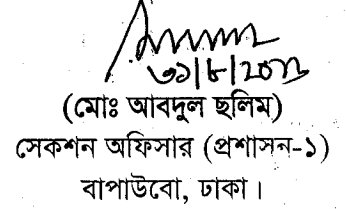 ৩১/৮/২০১১
(মোঃ আবদুল ছলিম)
সেকশন অফিসার (প্রশাসন-১)
বাপাউবো, ঢাকা।